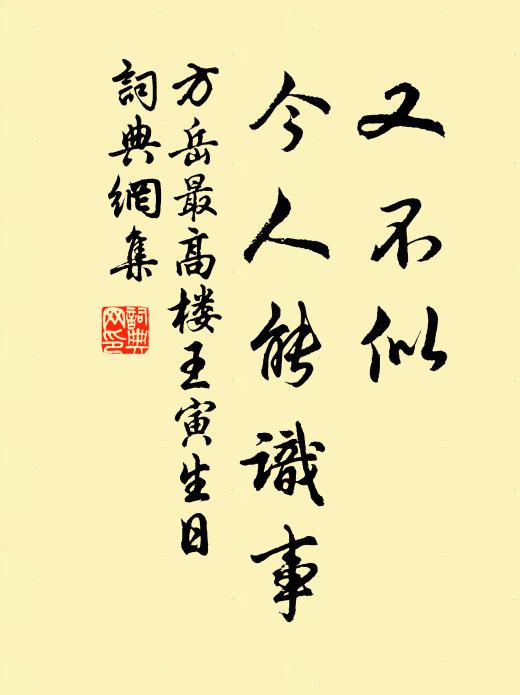 又不似
今人能識事
方岳最高楼王寅生日
詞典網集
詞典
网印